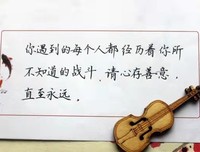 你遇到的每个人都经历着你所
不知道的战斗。请心存善意，
直至永远。